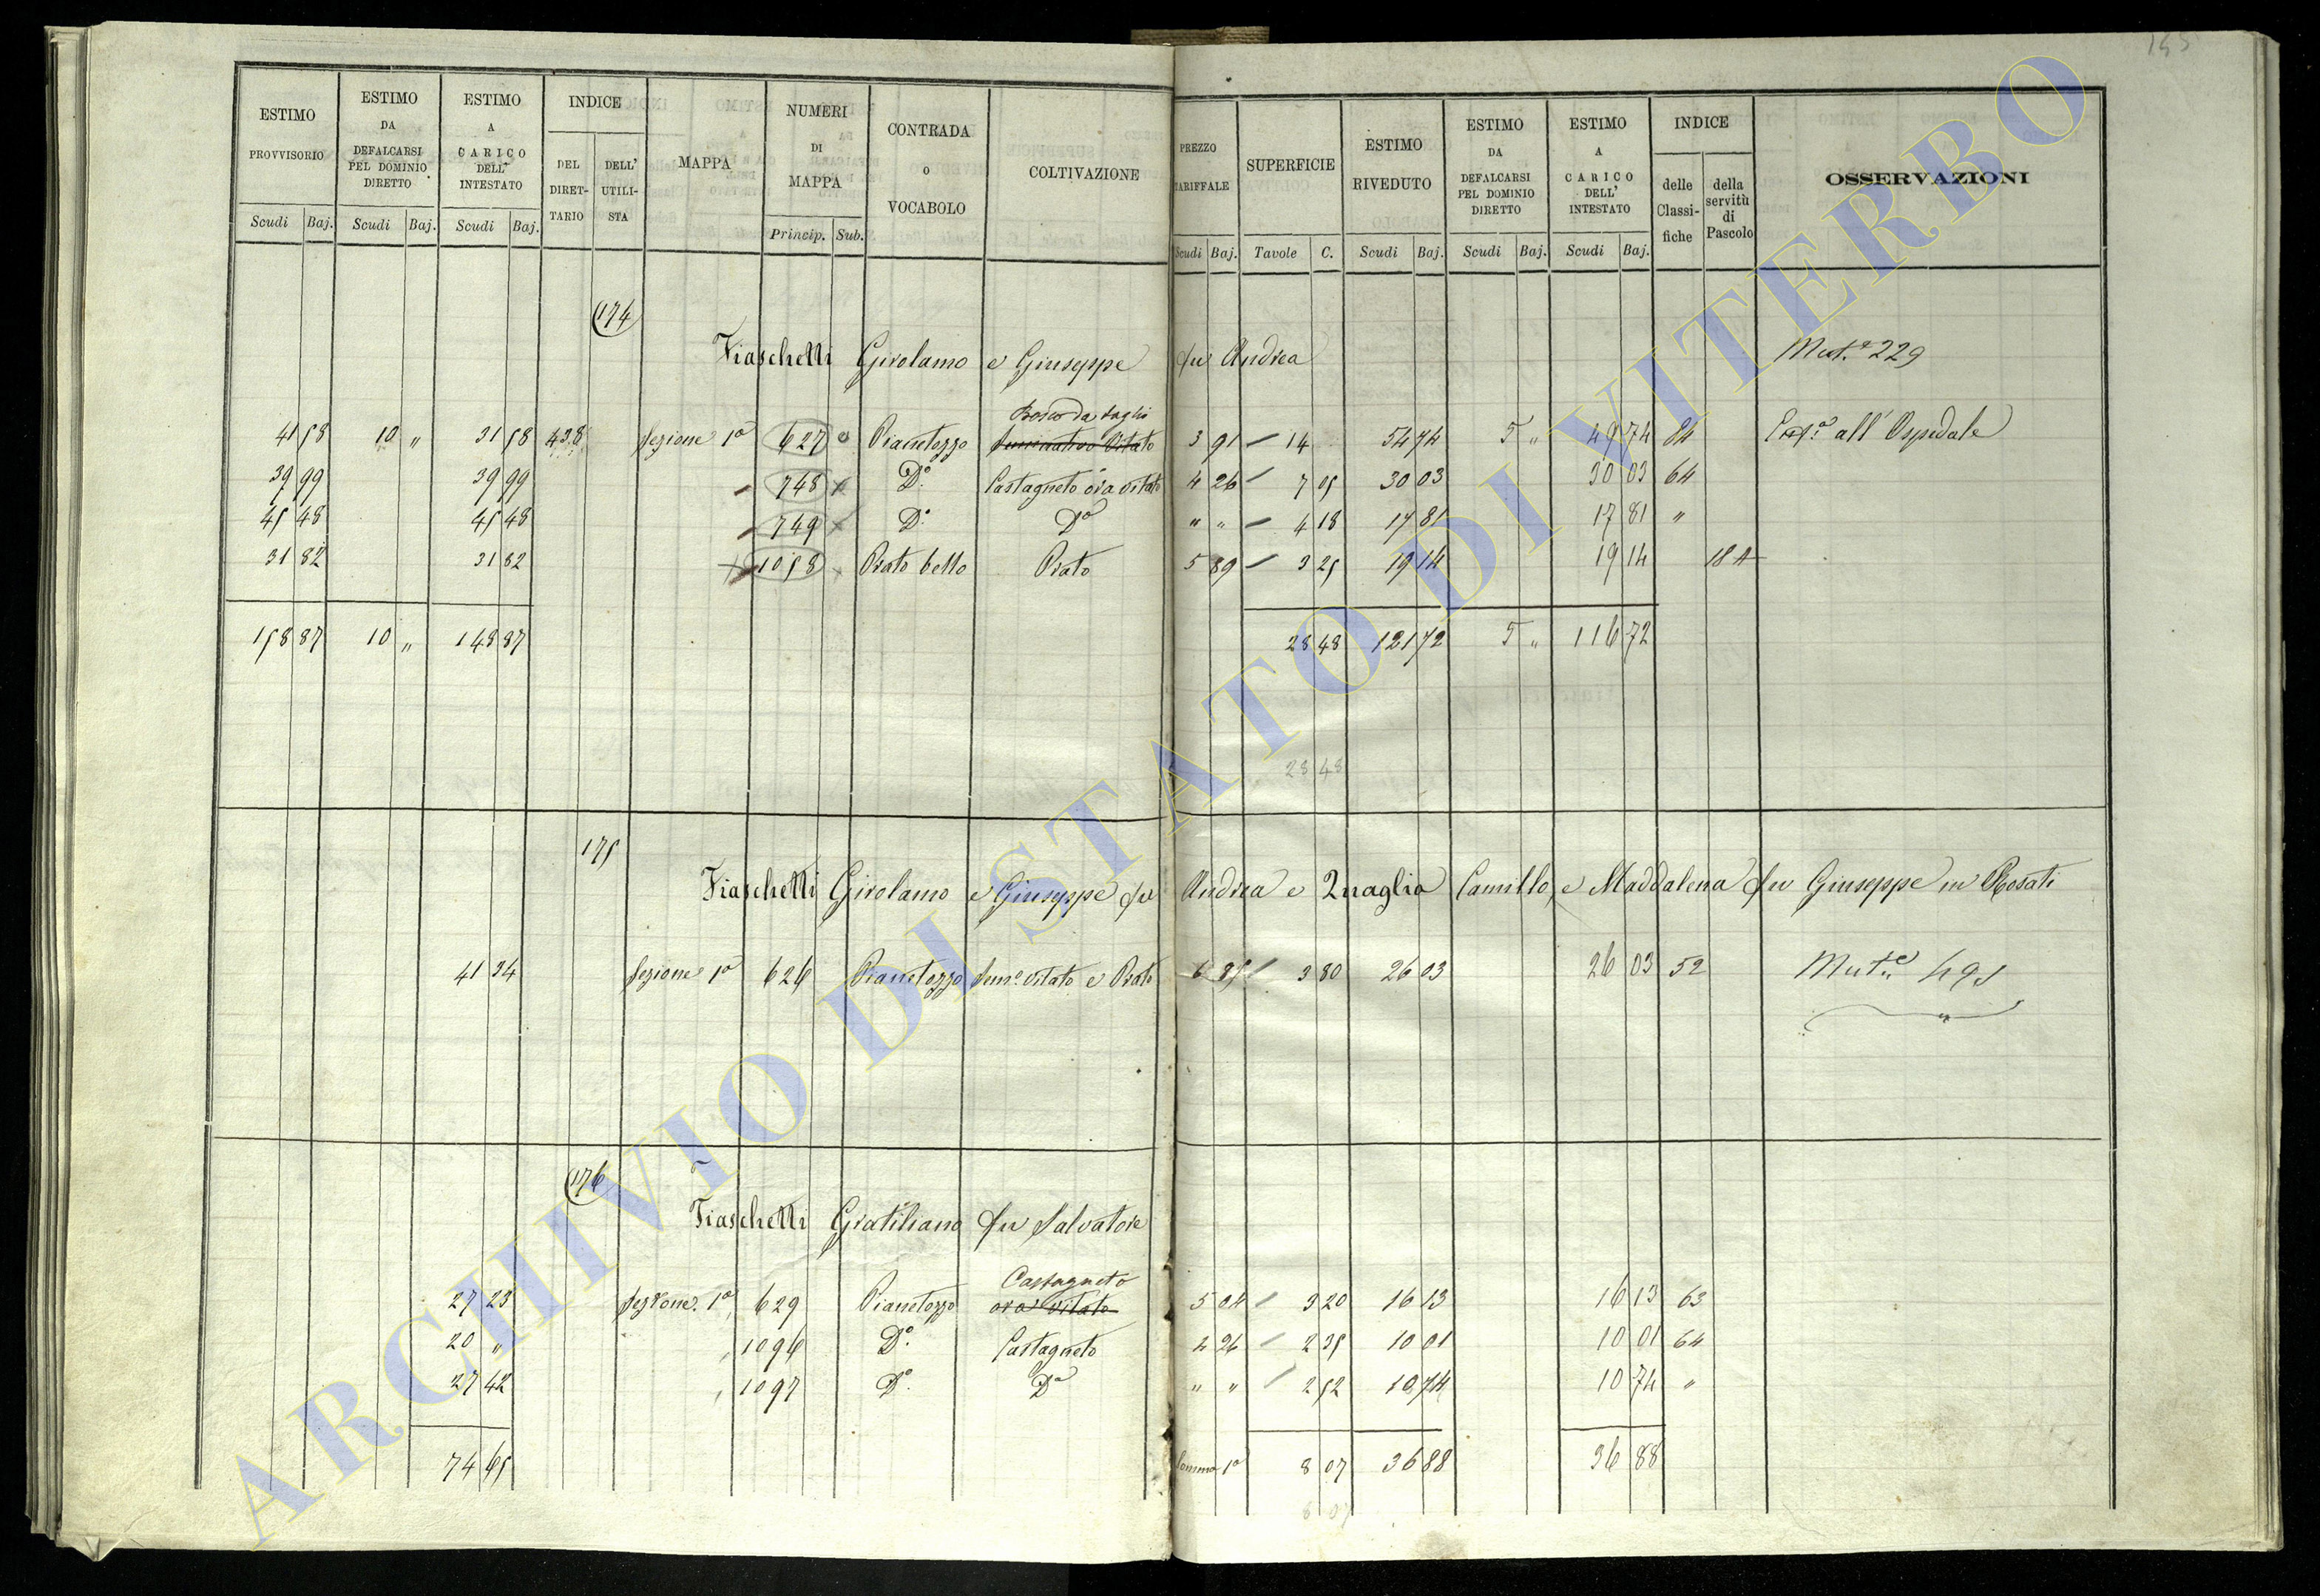 195
ESTIMO PROVVISORIO Scudi Baj.
ESTIMO DA DEFALCARSI PEL DOMINIO DIRETTO Scudi Baj.
ESTIMO A CARICO DELL' INTESTATO Scudi Baj.
INDICE DEL DIRET-TARIO DELL' UTILI-STA
MAPPA
NUMERI DI MAPPA Princip. Sub.
CONTRADA O VOCABOLO
COLTIVAZIONE
PREZZO TARIFFALE Scudi Baj.
SUPERFICIE Tavole C.
ESTIMO RIVEDUTO Scudi Baj.
ESTIMO DA DEFALCARSI PEL DOMINIO DIRETTO Scudi Baj.
ESTIMO A CARICO DELL' INTESTATO Scudi Baj.
INDICE delle Classi-fiche della servitù di Pascolo
OSSERVAZIONI
174
Fiaschetti Girolamo e Giuseppe fu Andrea Mut.e 229
Bosco da taglio
41 58 10 " 31 58 438 Sezione 1a 627 Pianetozzo Seminativo Vitato 3 91 14 54 74 5 " 49 74 84 all'Ospedale
39 99 39 99 748 Do. Castagneto ora vitato 4 26 7 05 30 03 30 03 64
45 48 45 48 749 Do. Do " " 4 18 17 81 17 81 "
31 82 31 82 1058 Prato bello Prato 5 89 3 25 19 14 19 14 18 A
158 87 10 " 148 87 28 48 121 72 5 " 116 72
28 48
175
Fiaschetti Girolamo e Giuseppe fu Andrea e Quaglia Camillo, e Maddalena fu Giuseppe in Rosati
41 34 Sezione 1a 626 Pianetozzo Sem.o vitato e Prato 6 85 3 80 26 03 26 03 52 Mut.e 491
176
Fiaschetti Gratiliano fu Salvatore
Castagneto
27 23 Sezione 1a 629 Pianetozzo ora vitato 5 04 3 20 16 13 16 13 63
20 " 1096 Do. Castagneto 4 26 2 35 10 01 10 01 64
27 42 1097 Do. Do " " 2 52 10 74 10 74 "
74 65 Somma 1a 8 07 36 88 36 88
8 07
ARCHIVIO DI STATO DI VITERBO